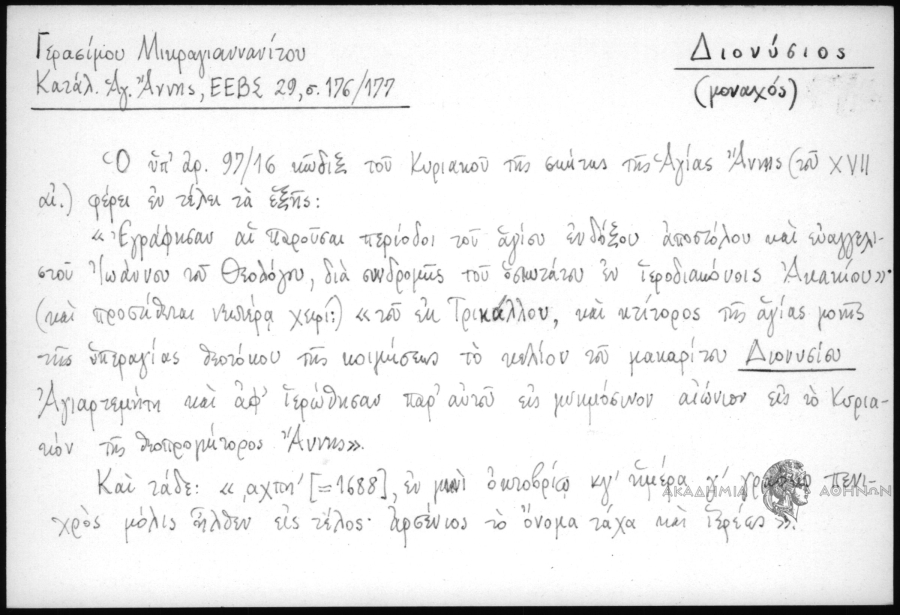 Γερασίμου Μικραγιαννανίτου
Διονύσιος
Κατάλ. Ἁγ. Ἄννης, ΕΕΒΣ 29, σ. 176/177
(μοναχός)
Ὁ ὑπ' ἀρ. 97/16 κῶδιξ τοῦ Κυριακοῦ τῆς σκήτης τῆς Ἁγίας Ἄννης (τοῦ XVII
αἰ.) φέρει ἐν τέλει τὰ ἑξῆς:
«Ἐγράφησαν αἱ παροῦσαι περίοδοι τοῦ ἁγίου ἐνδόξου ἀποστόλου καὶ εὐαγγελι-
στοῦ Ἰωάννου τοῦ Θεολόγου, διὰ συνδρομῆς τοῦ ὁσιωτάτου ἐν ἱεροδιακόνοις Ἀκακίου»
(καὶ προστίθεται νεωτέρᾳ χειρί:) «τοῦ ἐκ Τρικάλλου, καὶ κτίτορος τῆς ἁγίας μονῆς
τῆς ὑπεραγίας θεοτόκου τῆς κοιμήσεως τὸ κελίον τοῦ μακαρίτου Διονυσίου
Ἁγιαρτεμήτη καὶ ἀφ' ἱερώθησαν παρ' αὐτοῦ εἰς μνημόσινον αἰώνιον εἰς τὸ Κυρια-
κόν τῆς θεοπρομήτορος Ἄννης».
Καὶ τάδε: «͵αχπη' [=1688], ἐν μηνὶ ὀκτοβρίῳ κγ' ἡμέρα γ' γραφεὺς πενι-
χρὸς μόλις ἦλθεν εἰς τέλος· ἀρσένιος τὸ ὄνομα τάχα καὶ ἱερέως».
ΑΚΑΔΗΜΙΑ ΑΘΗΝΩΝ